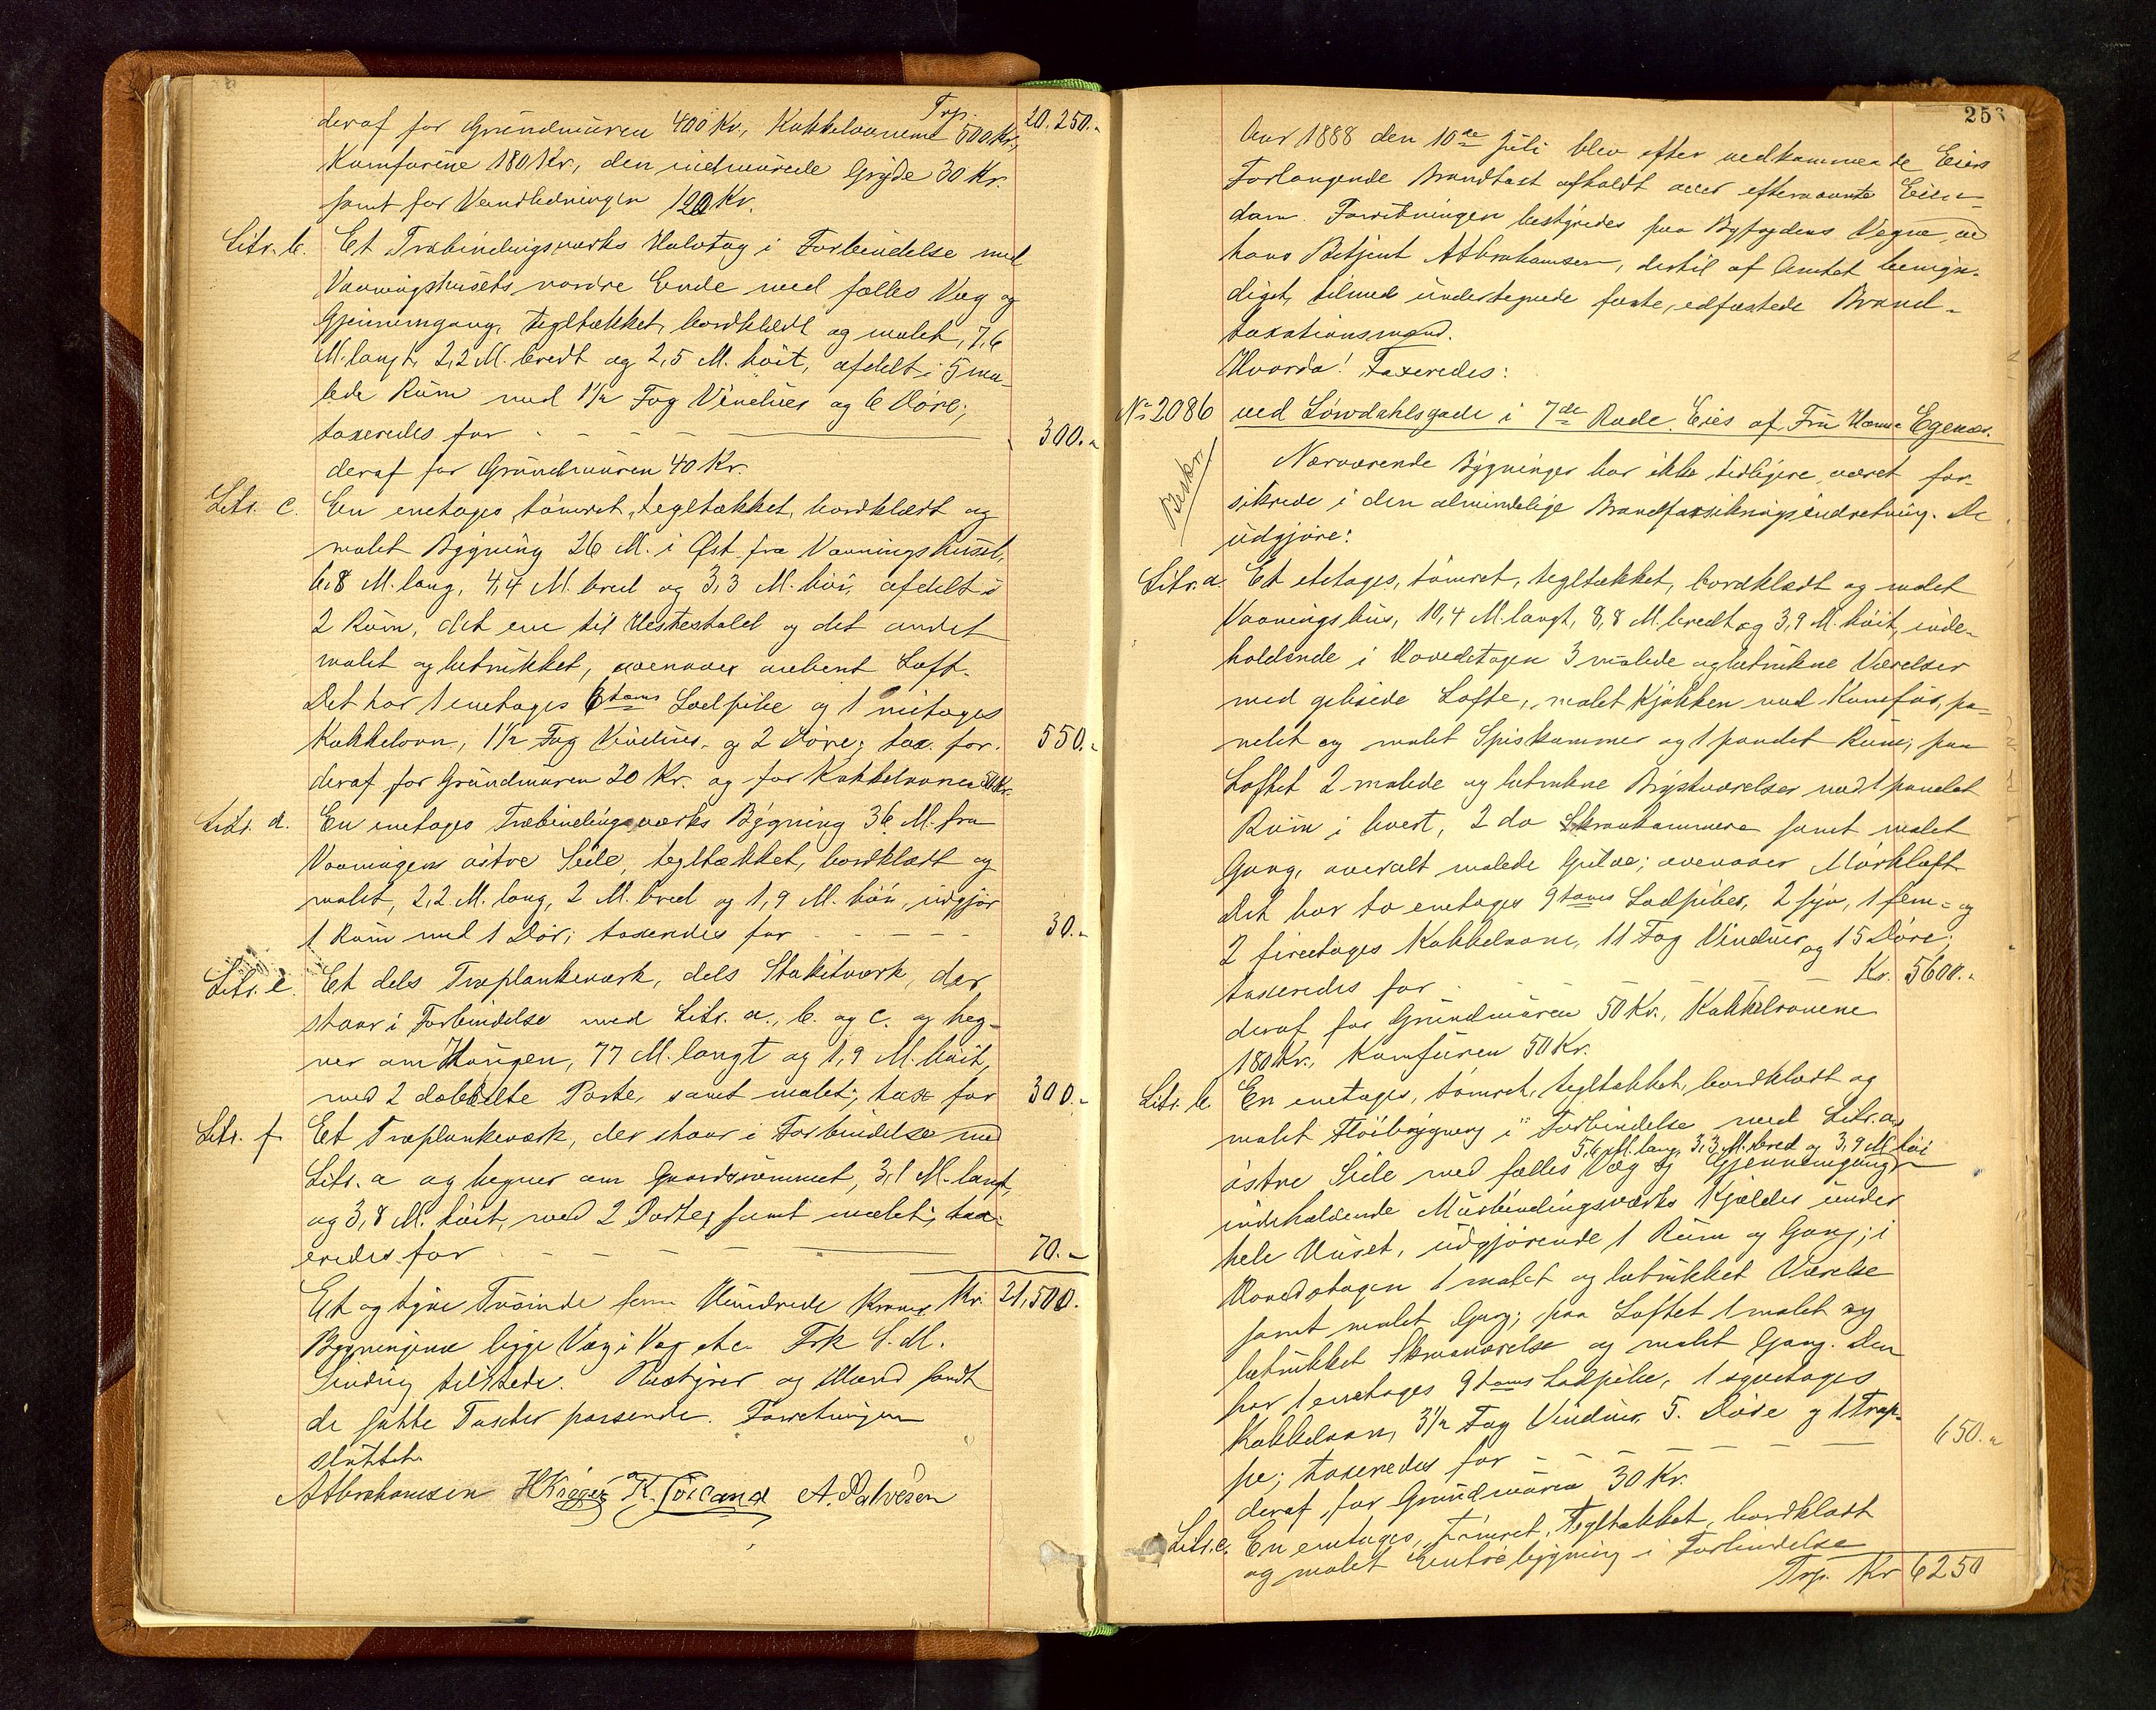 Trp. 20.250.-
deraf for Grundmuren 400 Kr., Kakkelovnene 500 Kr.,
Komfurene 180 Kr., den indmurede Gryde 30 Kr.
samt for Vandledningen 120 Kr.
Litr. b. Et Træbindingsværks Halvtag i Forbindelse med
Vaaningshusets nordre Ende med fælles Væg og
Gjennemgang, tegltækket, bordklædt og malet, 7,6
M. langt, 2,2 M. bredt og 2,5 M. høit, afdelt i 5 ma-
lede Rum med 1½ Fag Vinduer og 6 Døre;
taxeredes for - - - - 300.-
deraf for Grundmuren 40 Kr.
Litr. c. En enetages, tømret, tegltækket, bordklædt og
malet Bygning 26 M. i Øst fra Vaaningshuset,
6,8 M. lang, 4,4 M. bred og 3,3 M. høi, afdelt i
2 Rum, det ene til Hestestald og det andet
malet og betrukket, ovenover aabent Loft.
Det har 1 enetages 6toms Lodpibe og 1 toetages
Kakkelovn, 1½ Fag Vinduer og 2 Døre; tax. for. 550.-
deraf for Grundmuren 20 Kr. og for Kakkelovnen 50 Kr.
Litr. d. En enetages Træbindingsværks Bygning 36 M. fra
Vaaningens østre Side, tegltækket, bordklædt og
malet, 2,2 M. lang, 2 M. bred og 1,9 M. høi, udgjør
1 Rum med 1 Dør; taxeredes for - - - - 30.-
Litr. e. Et dels Træplankeværk, dels Stakitværk, der
staar i Forbindelse med Litr. a., b. og c. og heg-
ner om Haugen, 77 M. langt og 1,9 M. høit,
med 2 dobbelte Porte, samt malet; tax for 300.-
Litr. f. Et Træplankeværk, der staar i Forbindelse med
Litr. a og hegner om Gaardsrummet, 3,1 M. langt,
og 3,8 M. høit, med 2 Porte, samt malet; tax-
eredes for - - - - 70.-
Et og tyve Tusinde fem Hundrede Kroner Kr. 21,500.
Bygningene ligge Væg i Væg etc. Frk S. M.
tilstede. Bestyrer og Mænd fandt
de satte Taxter passende. Forretningen
sluttet.
A Abrahamsen H Krøger K. Torland A. Salvesen
253
Aar 1888 den 10de Juli blev efter vedkommende Eiers
Forlangende Brandtaxt afholdt over eftermeldte Eien-
dom. Forretningen bestyredes paa Byfogdens Vegne ved
hans Betjent A Abrahamsen, dertil af Amtet bemyn-
diget, tilmed undertegnede faste, edfæstede Brand-
taxationsmænd.
Hvorda! Taxeredes:
No 2086 ved Løvdahlsgade i 7de Rode. Eies af Fru Hanna Egenæs.
Beskr.
Nærværende Bygninger har ikke tidligere været for-
sikrede i den almindelige Brandforsikringsindretning. De
udgjøre:
Litr. a. Et etetages, tømret, tegltækket, bordklædt og malet
Vaaningshus, 10,4 M. langt, 8,8 M. bredt og 3,9 M. høit, inde-
holdende i Hovedetagen 3 malede og betrukne Værelser
med gibsede Lofte, malet Kjøkken med Komfur, pa-
nelet og malet Spiskammer og 1 panelet Rum; paa
Loftet 2 malede og betrukne Brystværelser med 1 panelet
Rum i hvert, 2 do Skraakammere samt malet
Gang, overalt malede Gulve; ovenover Mørkloft.
Det har to enetages 9toms Lodpiber, 2 syv, 1 fem- og
2 fireetages Kakkelovne, 11 Fag Vinduer og 15 Døre;
taxeredes for - - - - Kr. 5600.-
deraf for Grundmuren 50 Kr., Kakkelovnene
180 Kr., Komfuren 50 Kr.
Litr. b. En enetages, tømret, tegltækket, bordklædt og
malet Fløibygning i Forbindelse med Litr. a's
5,6 M. lang, 3,3 M. bred og 3,9 M. høi
østre Side med fælles Væg og Gjennemgang
indeholdende Murbindingsværks Kjælder under
hele Huset, udgjørende 1 Rum og Gang; i
Hovedetagen 1 malet og betrukket Værelse
samt malet Gang; paa Loftet 1 malet og
betrukket Skraaværelse og malet Gang. Den
har 1 enetages 9toms Lodpibe, 1 syvetages
Kakkelovn, 3½ Fag Vinduer, 5. Døre og 1 Trap-
pe; taxeredes for - - - - 650.-
deraf for Grundmuren 30 Kr.
Litr. c. En enetages, tømret, tegltækket, bordklædt
og malet Entrebygning i Forbindelse
Trp. Kr 6250